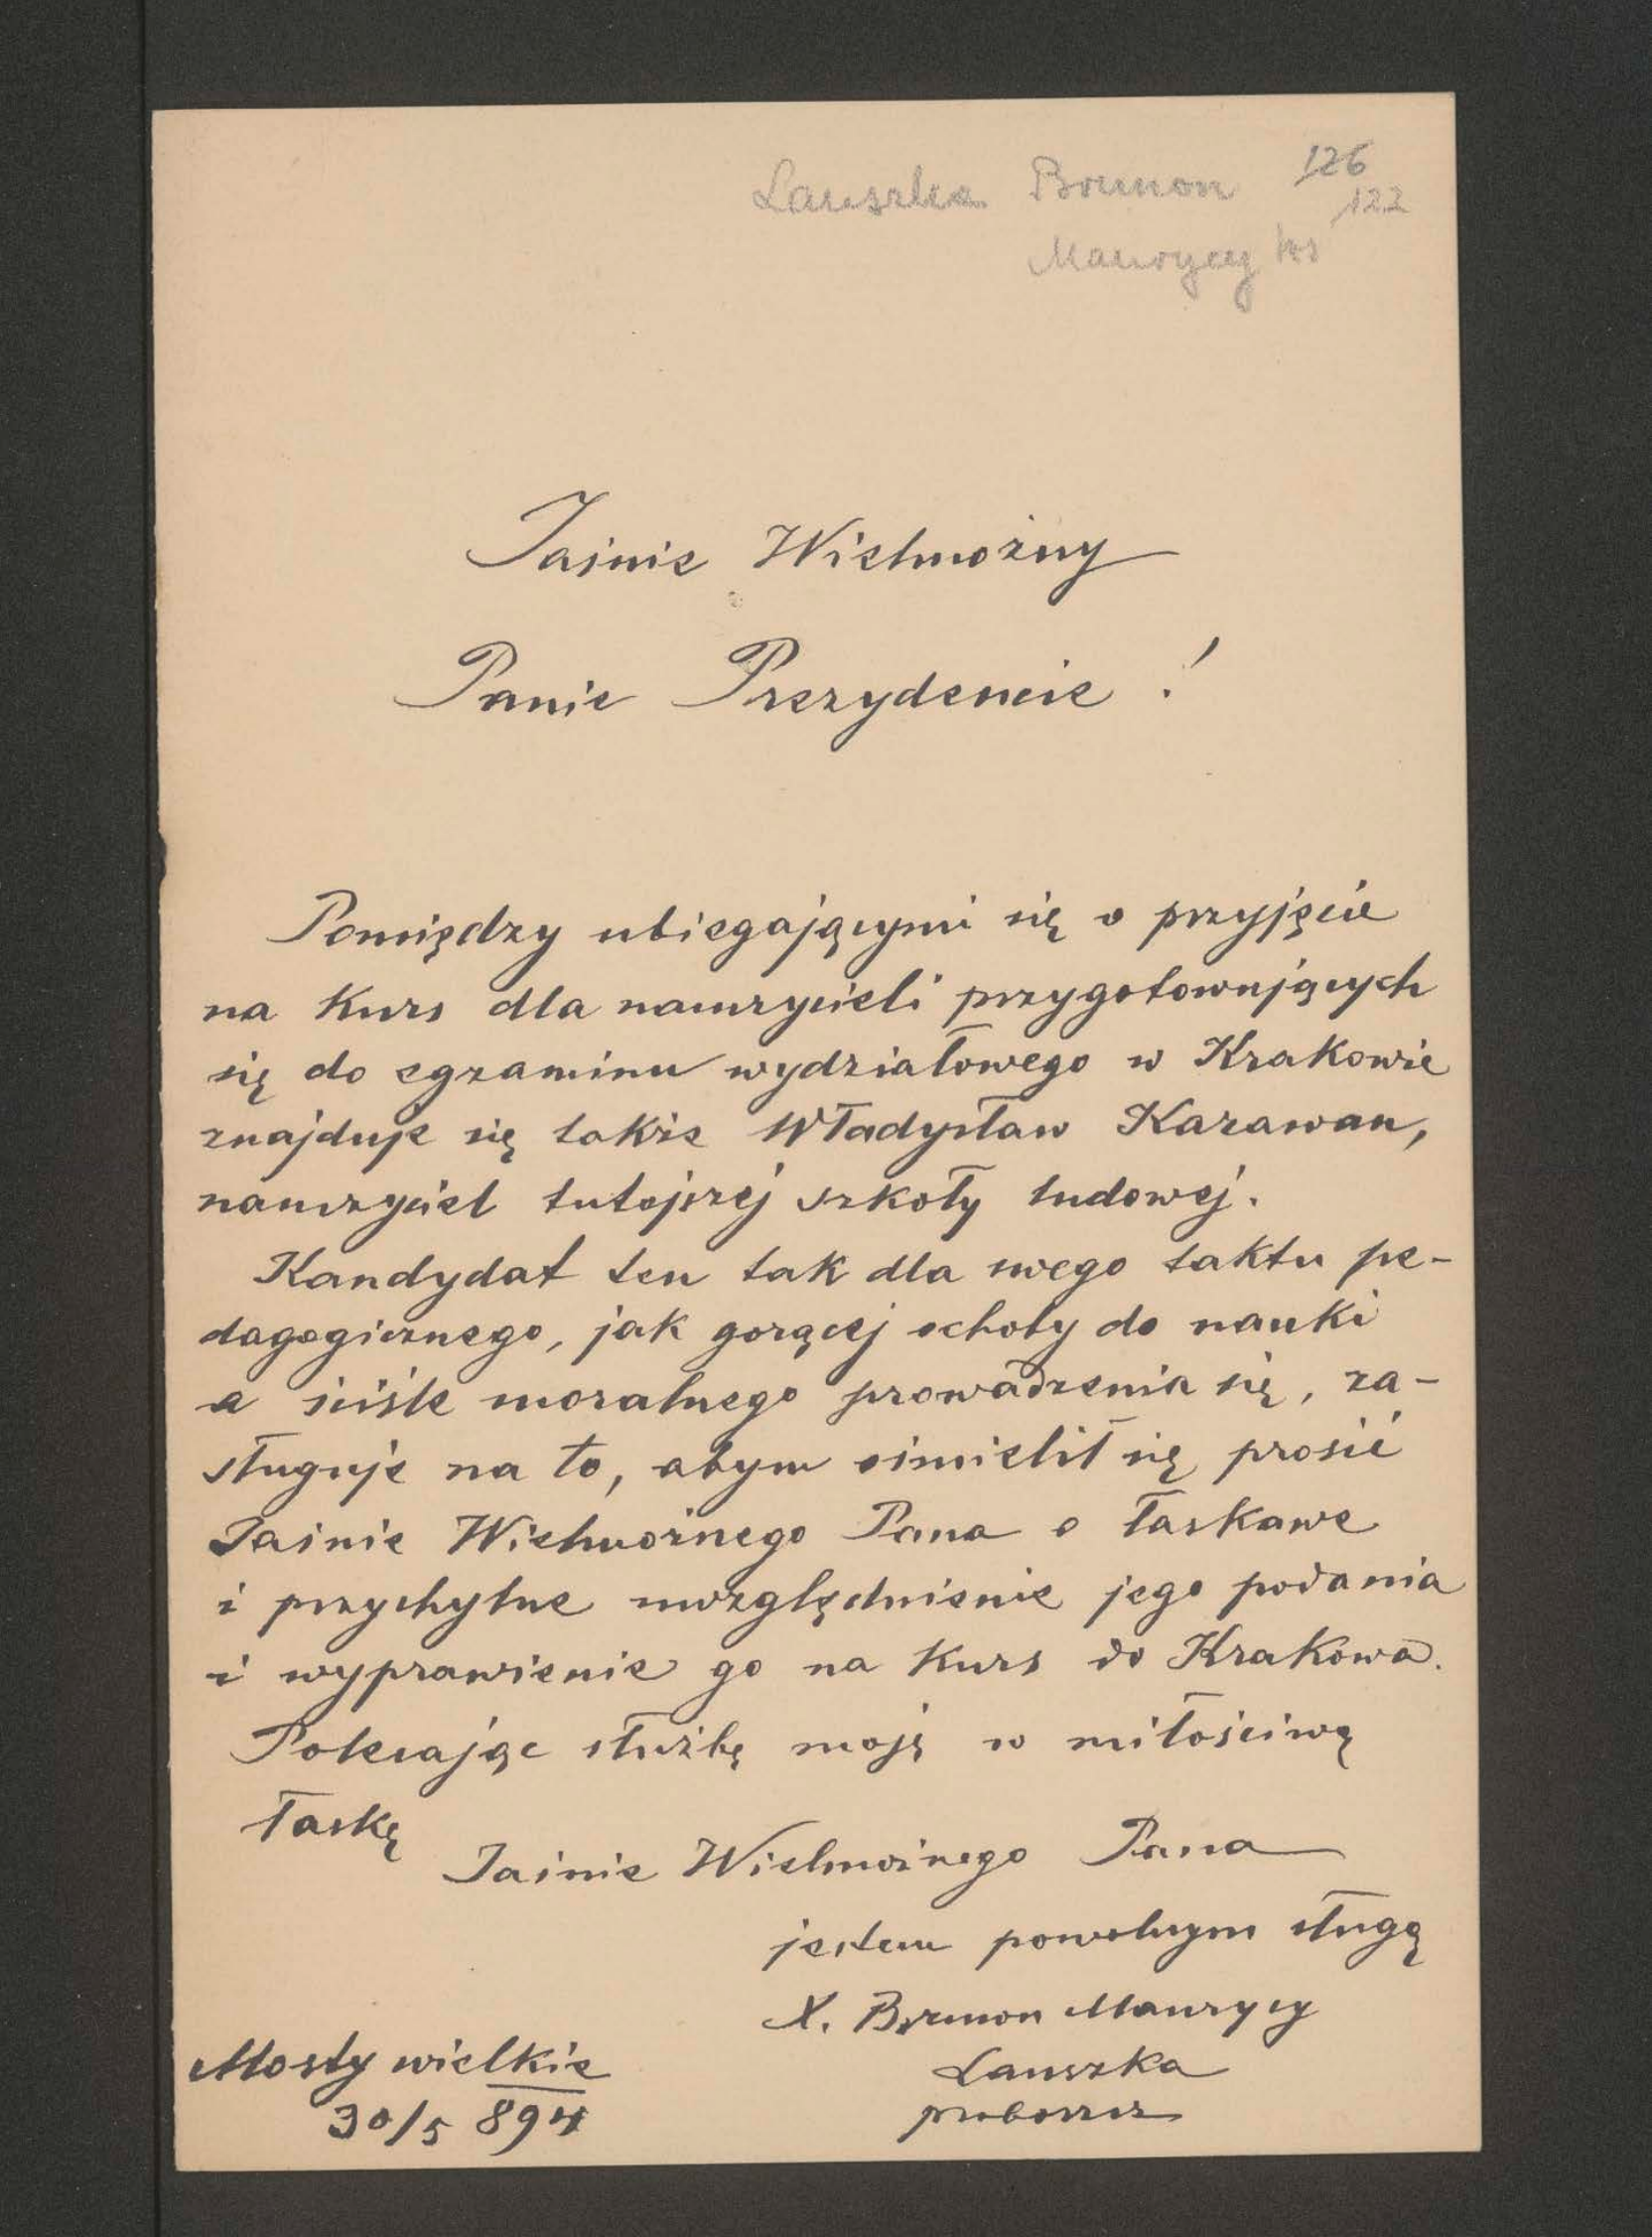 Lauszka Brunon 126
122
Maurycy ks
Jaśnie Wielmożny
Panie Prezydencie !
Pomiędzy ubiegającymi się o przyjęcie
na Kurs dla nauczycieli przygotowujących
się do egzaminu wydziałowego w Krakowie
znajduje się także Władysław Karawan,
nauczyciel tutejszej szkoły ludowej.
Kandydat ten tak dla swego taktu pe-
dagogicznego, jak gorącej ochoty do nauki
a ściśle moralnego prowadzenia się, za-
sługuje na to, abym ośmielił się prosić
Jaśnie Wielmożnego Pana o łaskawe
i przychylne uwzględnienie jego podania
i wyprawienie go na Kurs do Krakowa.
Polecając służbę moję w miłościwą
łaskę
Jaśnie Wielmożnego Pana
jestem powolnym sługą
X. Brunon Maurycy
Lauszka
proboszcz
Mosty wielkie
30/5 894